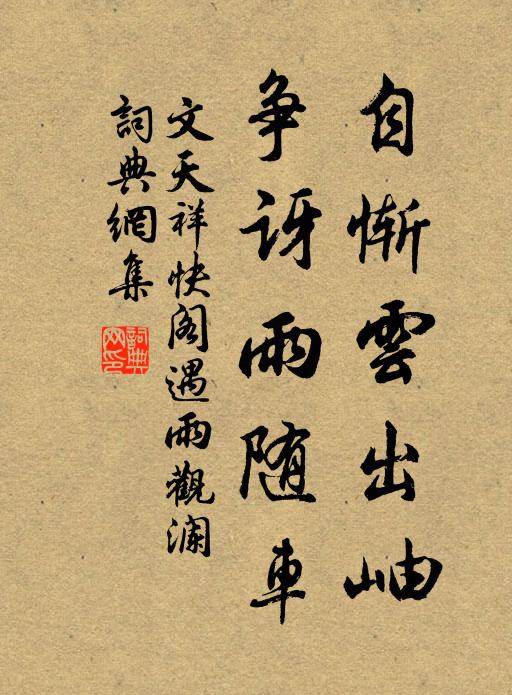 自惭雲出岫
争讶雨随車
文天祥快阁遇雨觀澜
詞典網集
詞典网印